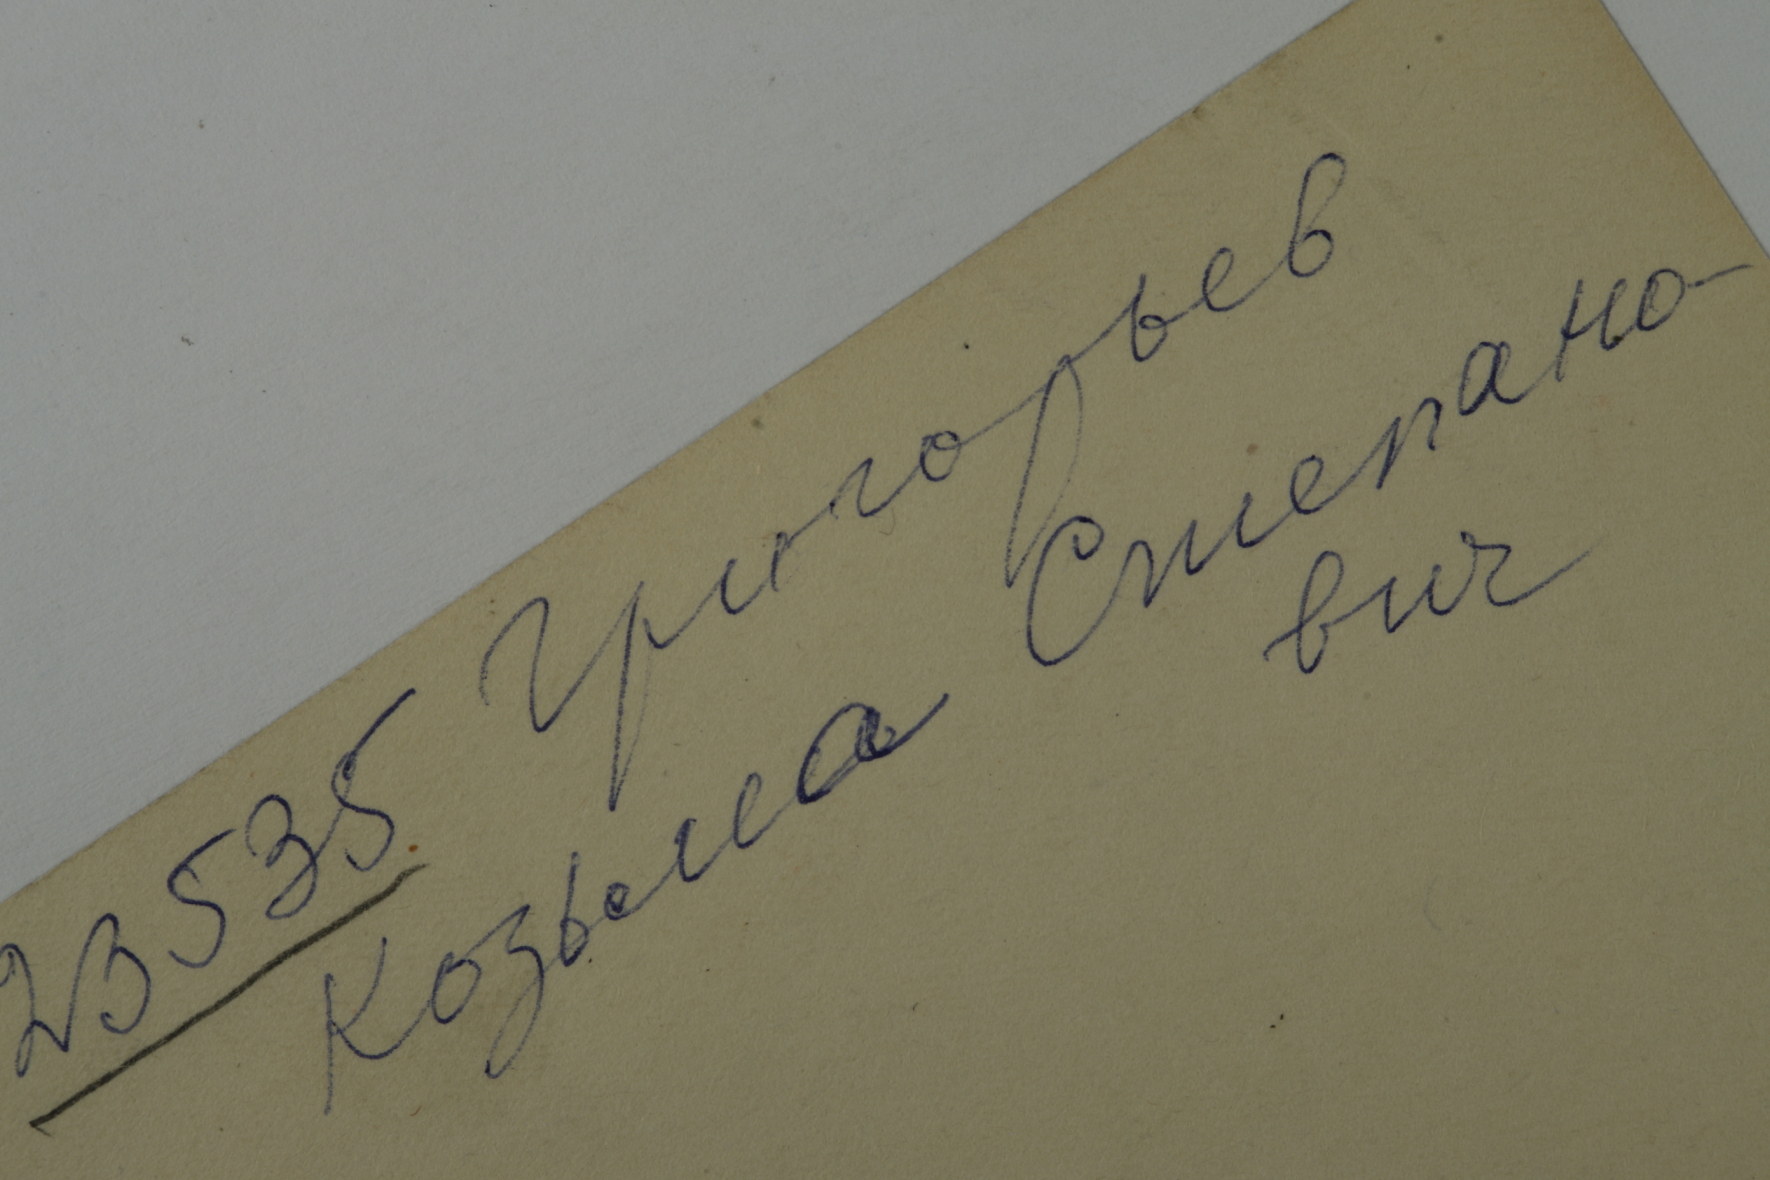 23535 Григорьев
Козьма Степано-
вич